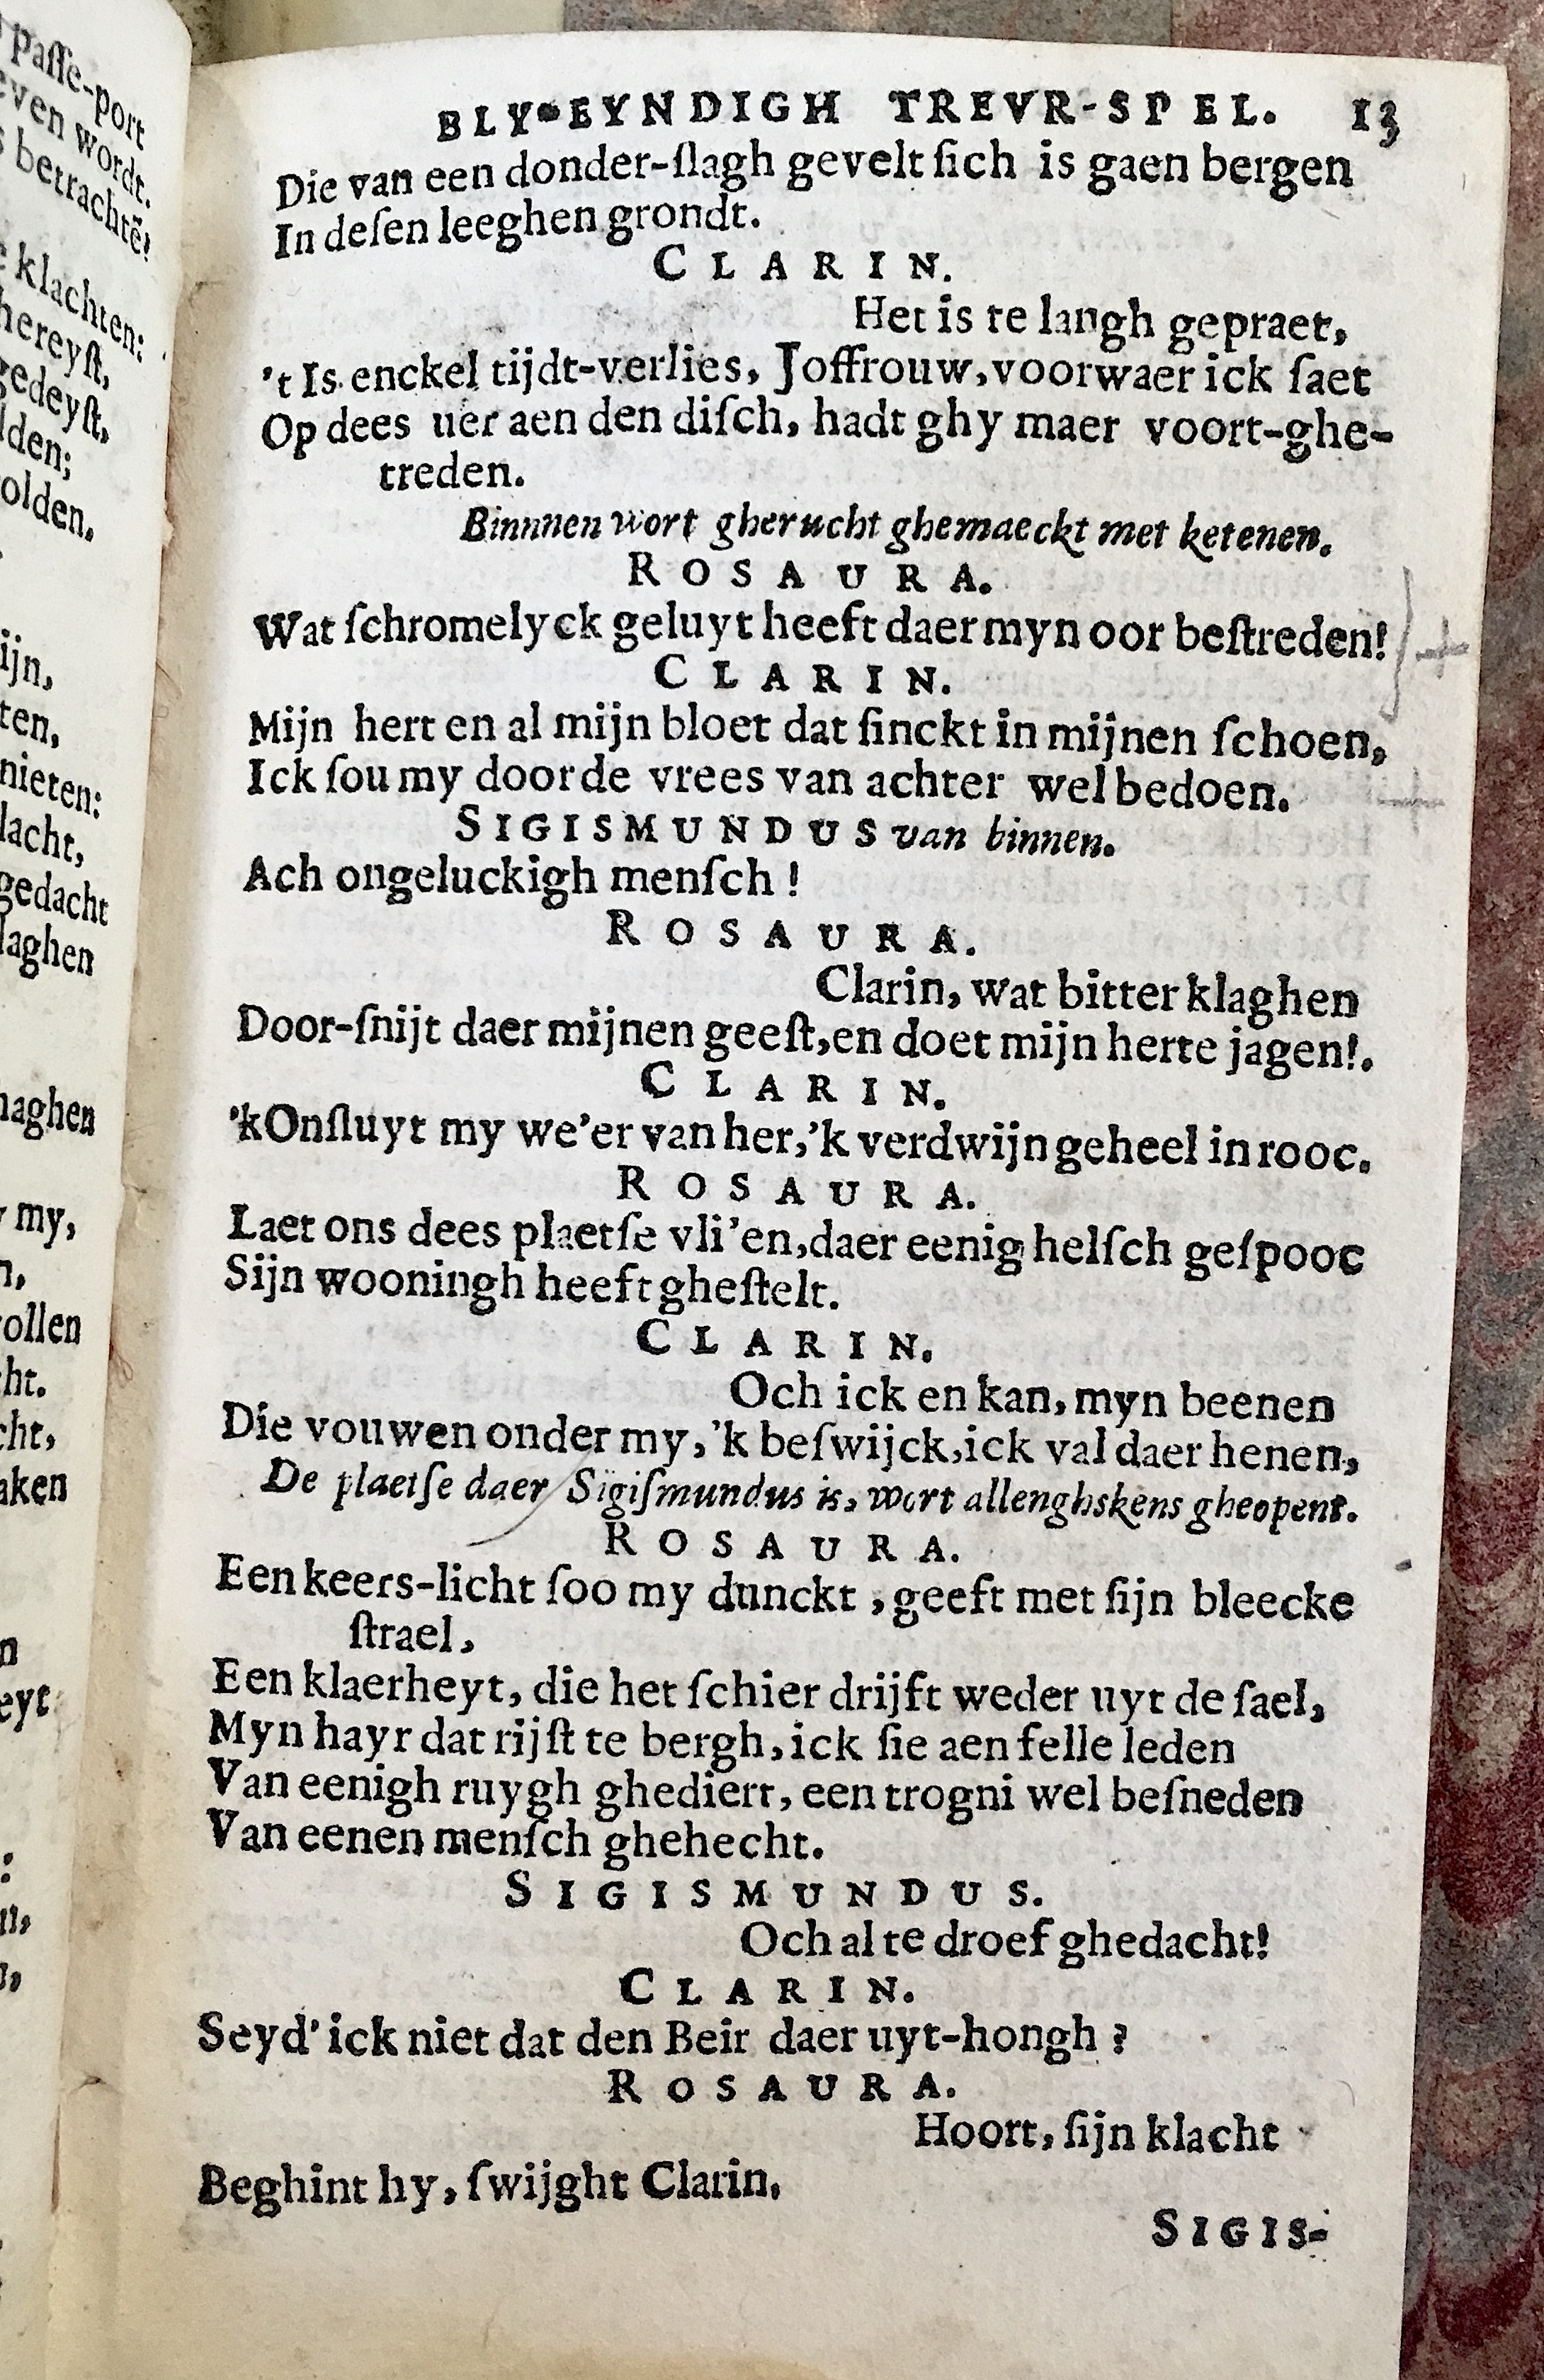 Paſſe-port
even wordt.
betrachtẽ!
klachten:
hereyſt,
gedeyſt,
lden;
olden.
ijn,
ten,
nieten:
lacht,
gedacht
laghen
naghen
my,
n,
ollen
ht.
cht,
aken
n
eyt
BLY-EYNDIGH TREVR-SPEL. 13
Die van een donder-ſlagh gevelt ſich is gaen bergen
In deſen leeghen grondt.
CLARIN.
Het is te langh gepraet,
't Is enckel tijdt-verlies, Joffrouw, voorwaer ick ſaet
Op dees uer aen den diſch, hadt ghy maer voort-ghe-
treden.
Binnnen wort gherucht ghemaeckt met ketenen.
ROSAURA.
Wat ſchromelyck geluyt heeft daer myn oor beſtreden!
CLARIN.
Mijn hert en al mijn bloet dat ſinckt in mijnen ſchoen,
Ick ſou my door de vrees van achter wel bedoen.
SIGISMUNDUS van binnen.
Ach ongeluckigh menſch !
ROSAURA.
Clarin, wat bitter klaghen
Door-ſnijt daer mijnen geeſt, en doet mijn herte jagen!.
CLARIN.
'kOnſluyt my we'er van her, 'k verdwijn geheel in rooc.
ROSAURA.
Laet ons dees plaetſe vli'en, daer eenig helſch geſpooc
Sijn wooningh heeft gheſtelt.
CLARIN.
Och ick en kan, myn beenen
Die vouwen onder my, 'k beſwijck, ick val daer henen,
De plaetſe daer Sigiſmundus is, wort allenghskens gheopent.
ROSAURA.
Een keers-licht ſoo my dunckt , geeft met ſijn bleecke
ſtrael,
Een klaerheyt, die het ſchier drijft weder uyt de ſael,
Myn hayr dat rijſt te bergh, ick ſie aen felle leden
Van eenigh ruygh ghediert, een trogni wel beſneden
Van eenen menſch ghehecht.
SIGISMUNDUS.
Och al te droef ghedacht!
CLARIN.
Seyd' ick niet dat den Beir daer uyt-hongh ?
ROSAURA.
Hoort, ſijn klacht
Beghint hy, ſwijght Clarin.
SIGIS-